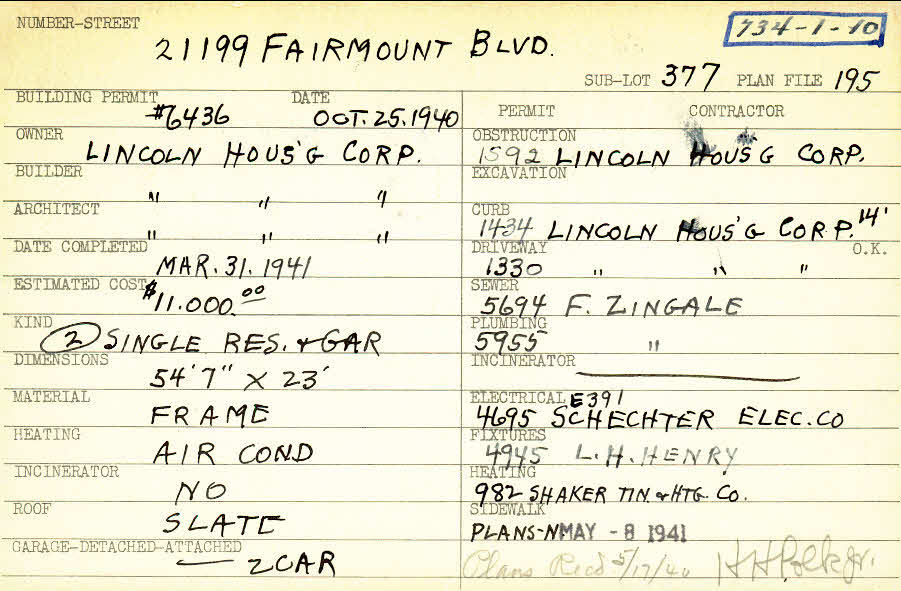 NUMBER-STREET
734-1-10
21199 FAIRMOUNT BLVD.
SUB-LOT 377 PLAN FILE 195
BUILDING PERMIT DATE
#6436 OCT. 25. 1940
OWNER
LINCOLN HOUS'G CORP.
BUILDER
" " "
ARCHITECT
" " "
DATE COMPLETED
MAR. 31. 1941
ESTIMATED COST
$11.000.00
KIND
(2) SINGLE RES. & GAR
DIMENSIONS
54' 7" X 23'
MATERIAL
FRAME
HEATING
AIR COND
INCINERATOR
NO
ROOF
SLATE
GARAGE-DETACHED-ATTACHED
— 2 CAR
PERMIT CONTRACTOR
OBSTRUCTION
1592 LINCOLN HOUS'G CORP.
EXCAVATION
CURB
1434 LINCOLN HOUS'G CORP. '14'
DRIVEWAY O.K.
1330 " " "
SEWER
5694 F. ZINGALE
PLUMBING
5955 "
INCINERATOR
ELECTRICAL E391
4695 SCHECHTER ELEC. CO
FIXTURES
4945 L. H. HENRY
HEATING
982 SHAKER TIN. & HTG. CO.
SIDEWALK
PLANS-N MAY - 8 1941
Plans Rec'd 5/17/40 H H Polk Jr.